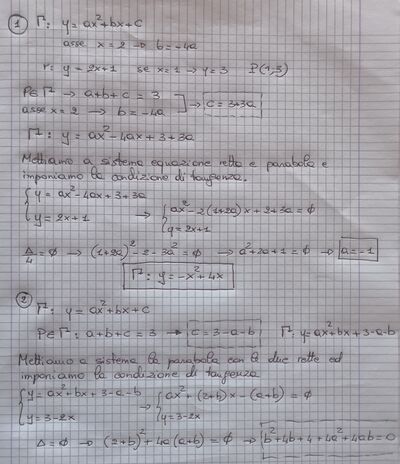 ① Γ: y = ax²+bx+c
asse x=2 → b=-4a
r: y = 2x+1 se x=1 → y=3 P(1,3)
P∈Γ → a+b+c = 3
asse x=2 → b=-4a ] → c = 3+3a
Γ: y = ax²-4ax+3+3a
Mettiamo a sistema equazione retta e parabola e
imponiamo la condizione di tangenza.
{ y = ax²-4ax+3+3a
{ y = 2x+1 → { ax²-2(1+2a)x+2+3a=0
{ y=2x+1
Δ/4=0 → (1+2a)²-2-3a²=0 → a²+2a+1=0 → a=-1
Γ: y=-x²+4x
② Γ: y = ax²+bx+c
P∈Γ: a+b+c=3 → c=3-a-b Γ: y=ax²+bx+3-a-b
Mettiamo a sistema la parabola con le due rette ed
imponiamo la condizione di tangenza
{ y=ax²+bx+3-a-b → { ax²+(2+b)x-(a+b)=0
{ y=3-2x { y=3-2x
Δ=0 → (2+b)²+4a(a+b)=0 → b²+4b+4+4a²+4ab=0